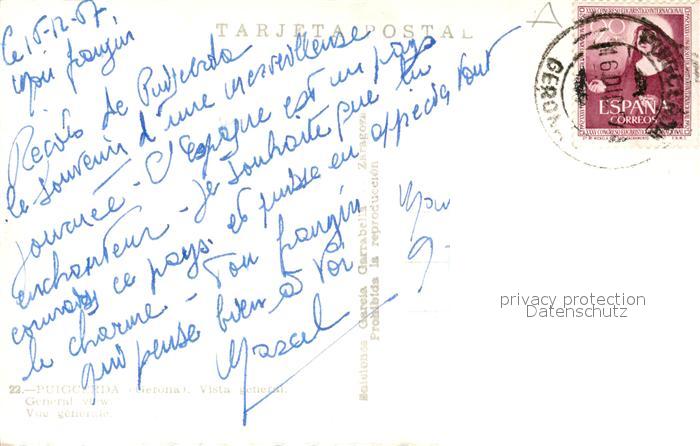 TARJETA POSTAL
Le 15-12-57
Mon frangin
Reçois de Puigcerda
le souvenir d'une merveilleuse
journée - L'Espagne est un pays
enchanteur - Je souhaite que tu
connaisses ce pays et puisse en apprécier tout
le charme - Ton frangin
qui pense bien à toi
Marcel
22.—PUIGCERDA (Gerona). Vista general.
General view.
Vue générale.
Ediciones García Garrabella Zaragoza
Prohibida la reproducción
ESPAÑA
CORREOS
GERONA
privacy protection
Datenschutz